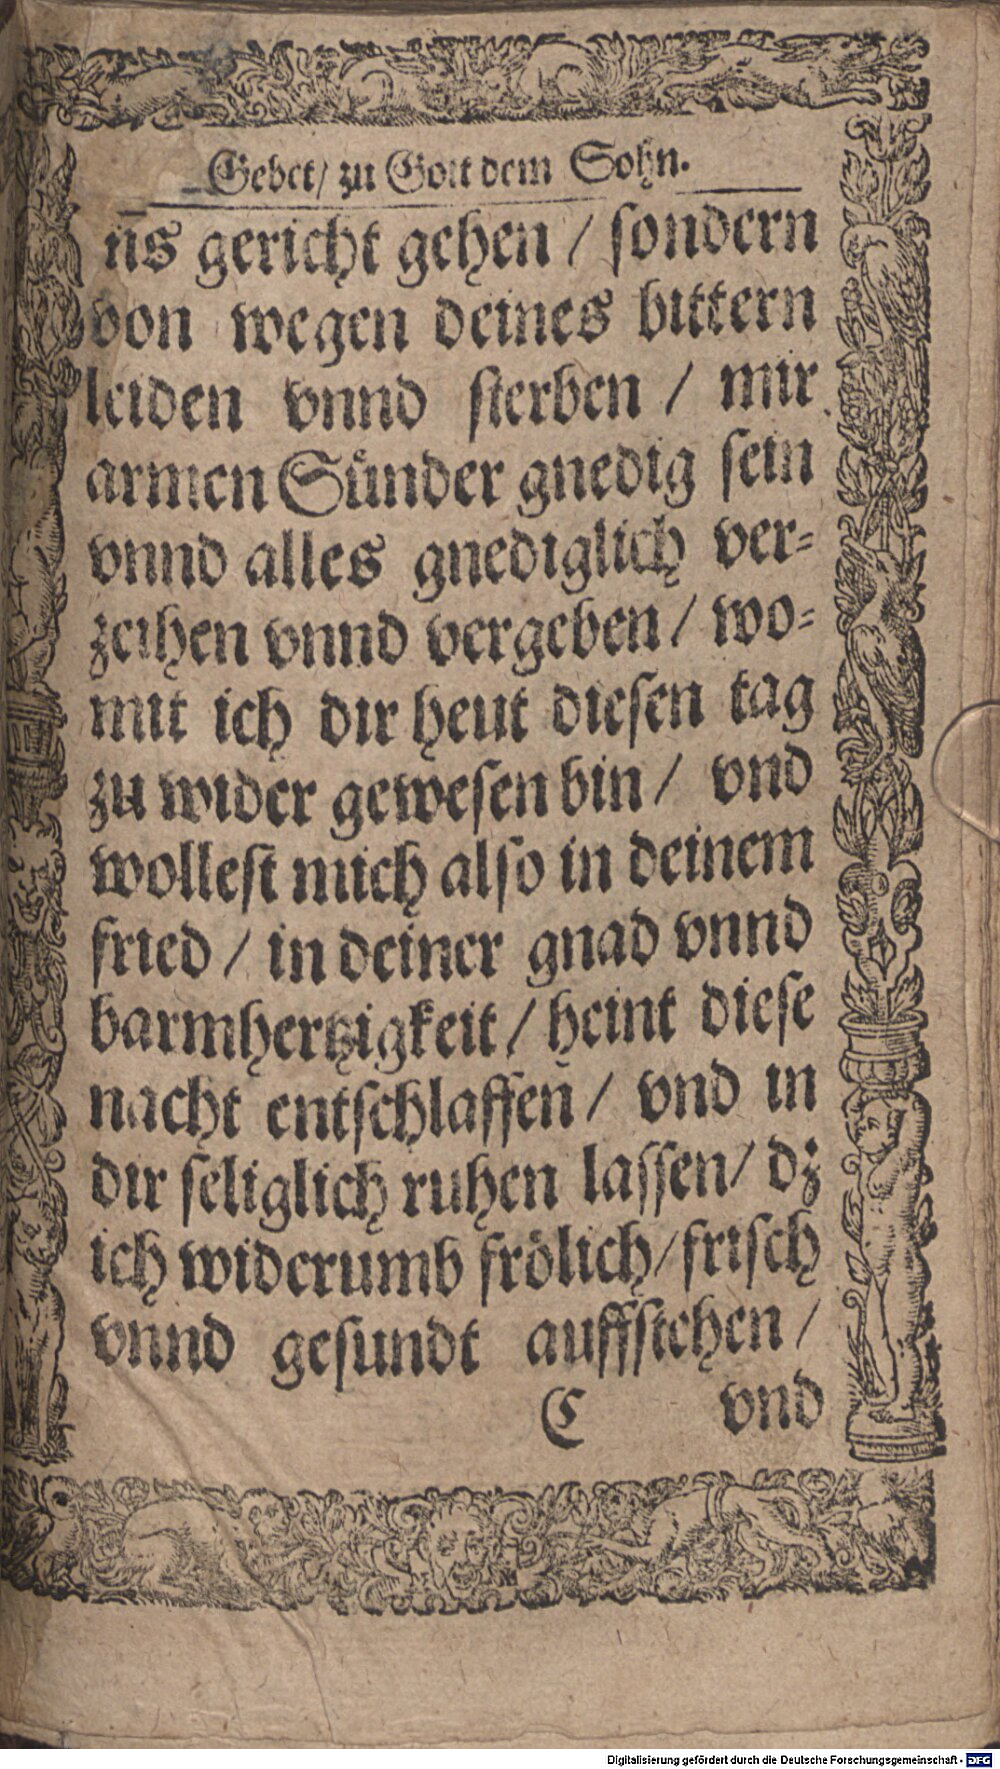 Gebet/ zu Gott dem Sohn.
ns gericht gehen / sondern
von wegen deines bittern
leiden vnnd sterben / mir
armen Sünder gnedig sein
vnnd alles gnediglich ver-
zeihen vnnd vergeben / wo-
mit ich dir heut diesen tag
zu wider gewesen bin / vnd
wollest mich also in deinem
fried / in deiner gnad vnnd
barmhertzigkeit / heint diese
nacht entschlaffen / vnd in
dir seliglich ruhen lassen / dz
ich widerumb frölich / frisch
vnnd gesundt auffstehen /
C vnd
Digitalisierung gefördert durch die Deutsche Forschungsgemeinschaft - DFG